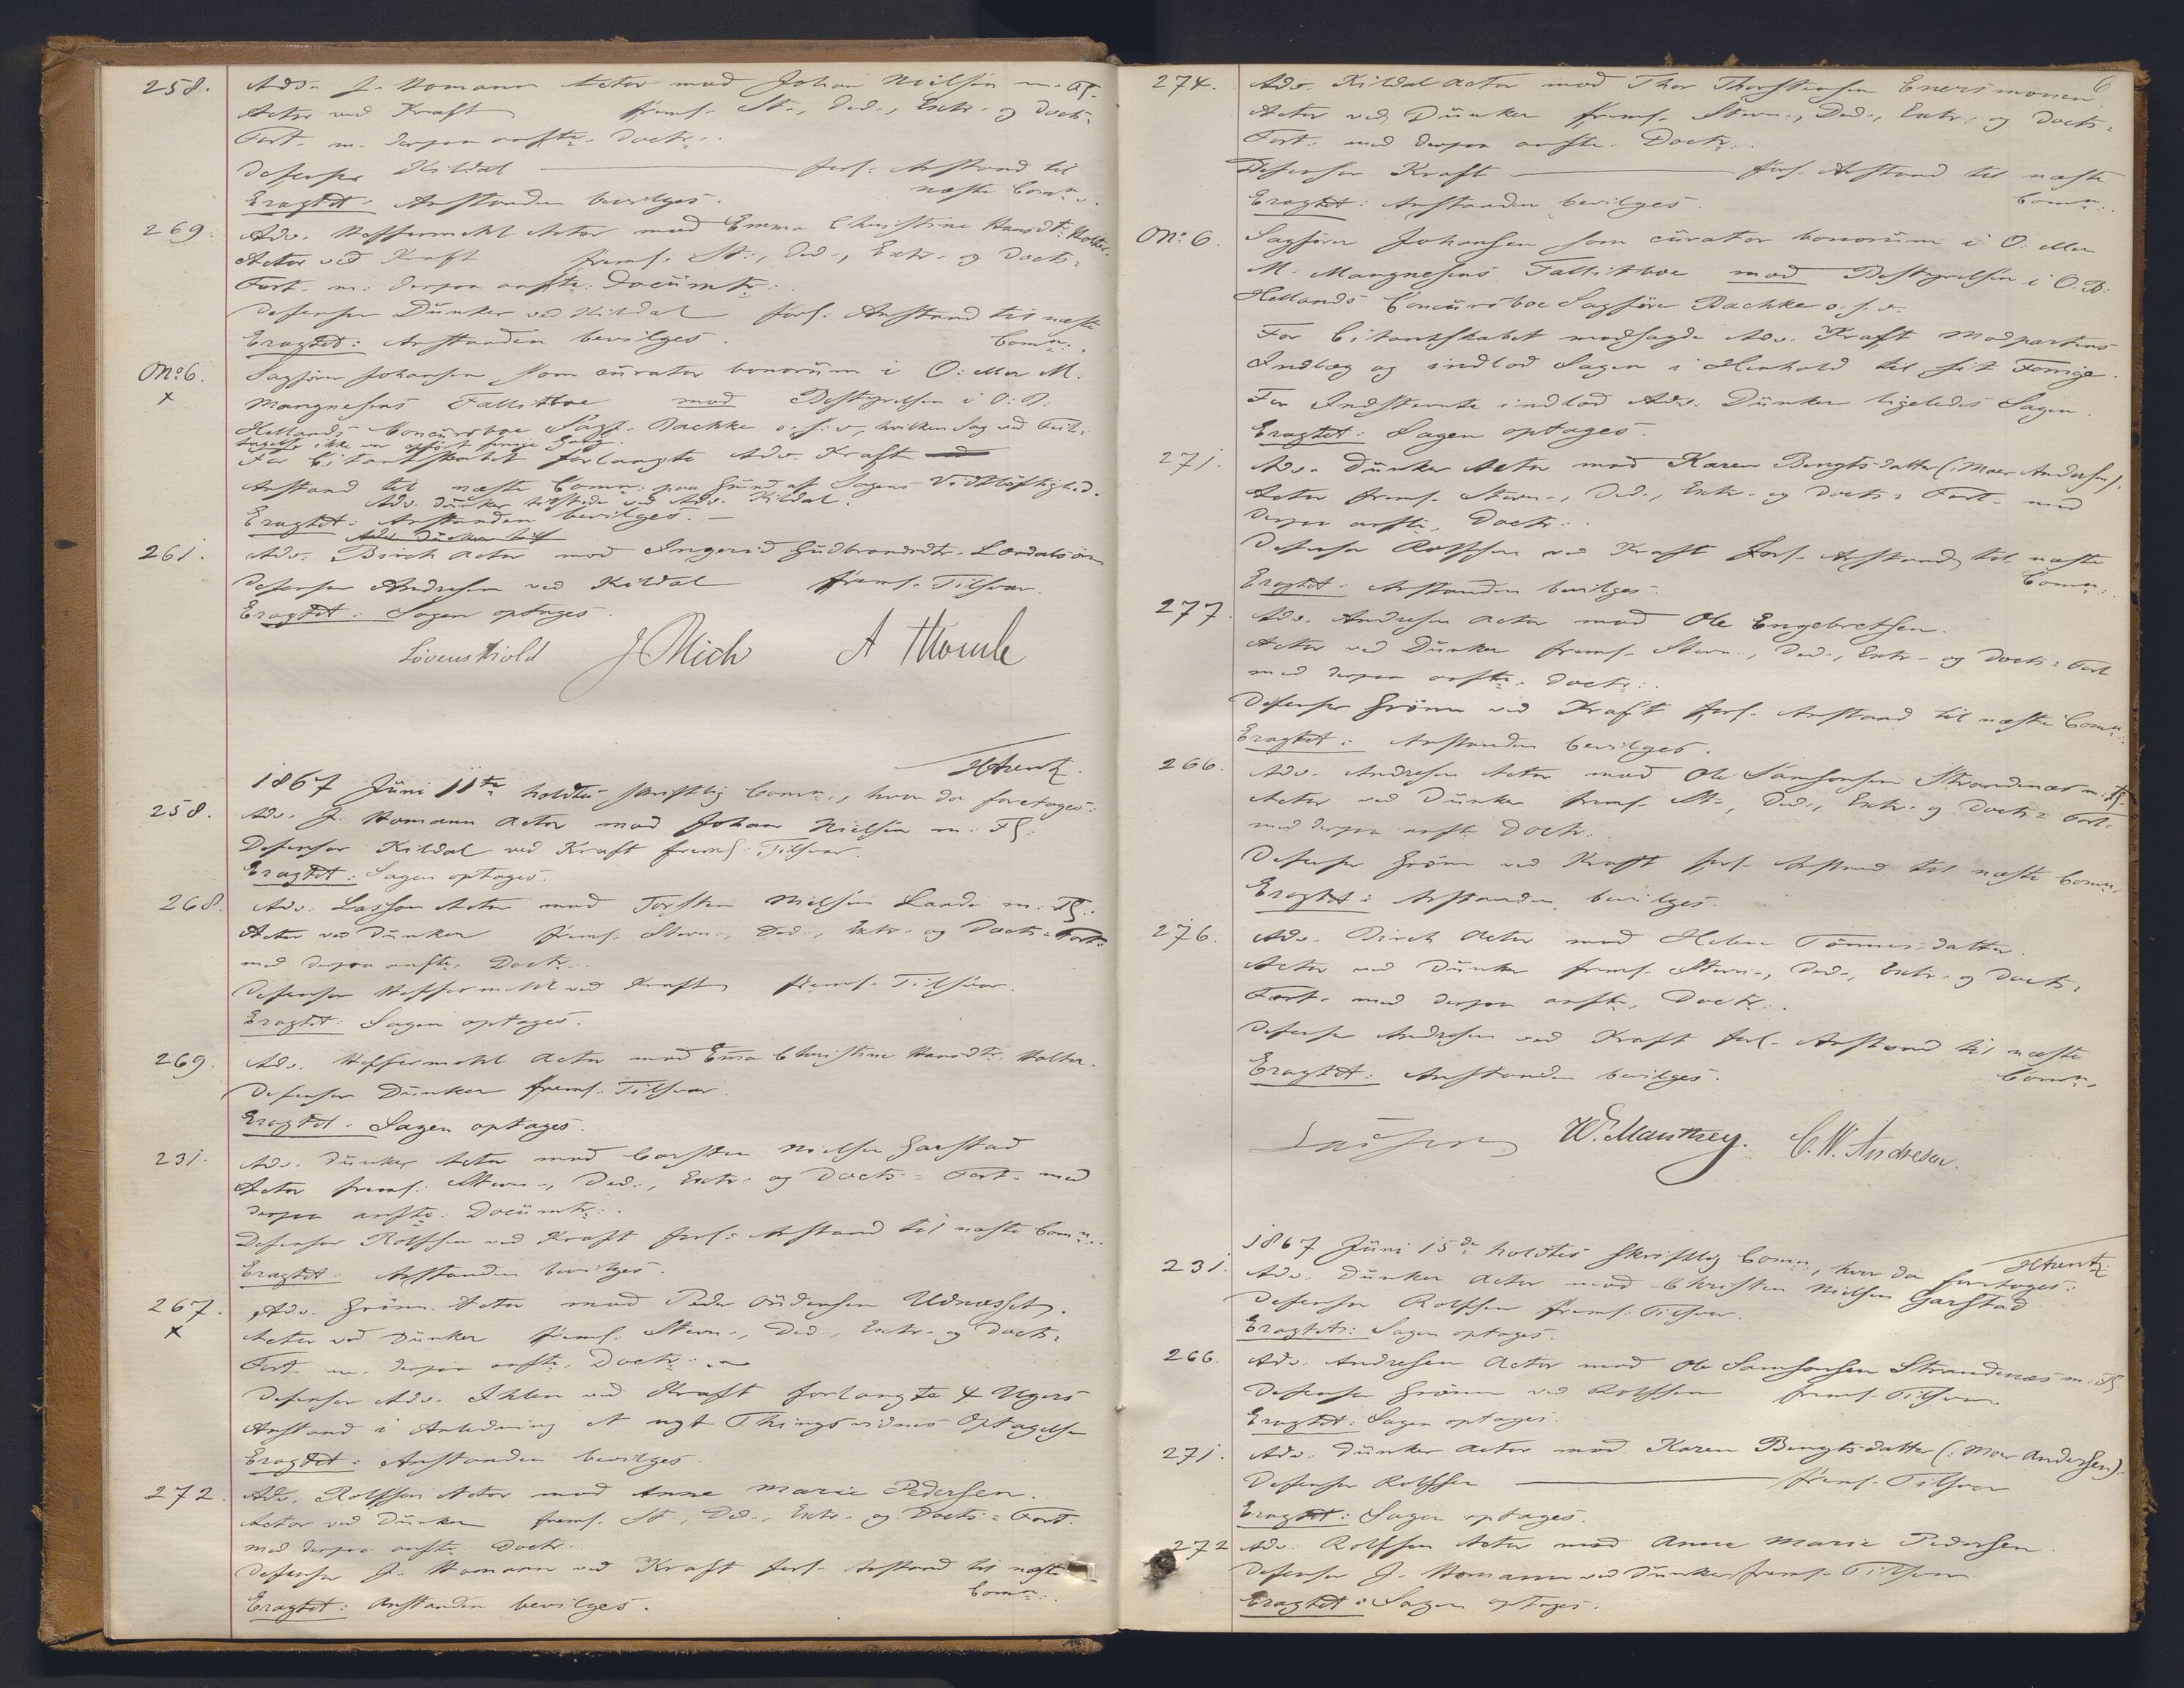 258. Adv. J. Homann Actor mod Johan Nielsen m. Fl.
Actor ved Kraft frems. St., Ded., Extr. og Doctr.
Fort. m. derpaa anførte Doctr.
Defensor Kildal forl. Anstand til
næste Comn.
Eragtet: Anstanden bevilges.
269. Adv. Heffermehl Actor mod Emma Christine Hansdtr. Holter.
Actor ved Kraft frems. St., Ded., Extr. og Doctr.
Fort. m. derpaa anførte Documtr.
Defensor Dünker ved Kildal forl. Anstand til næste
Comn.
Eragtet: Anstanden bevilges.
No. 6. Sagfører Johansen som curator bonorum i O. M.
x Mangnesens Fallitboe mod Bestyrelsen i O. B.
Hellands Concursboe Sagf. Bachke o. s. v., hvilken Sag ved Feil-
tagelse ikke var opført forrige Gang.
For Citantskabet forlangte Adv. Kraft
Anstand til næste Comn. paa Grund af Sagens Vidtløftighed.
Adv. Dünker tilstede ved Adv. Kildal.
Eragtet: Anstanden bevilges.
Adv. Dünker
261. Adv. Birch Actor mod Ingerid Gudbrandsdtr. Lærdalsøren
Defensor Andresen ved Kildal frems. Tilsvar.
Eragtet: Sagen optages.
Løvenskiold J Mich A Thomle
1867 Juni 11te holdtes skriftlig Comn., hvor da foretoges:
258. Adv. J. Homann Actor mod Johan Nielsen m. Fl.
Defensor Kildal ved Kraft frems. Tilsvar.
Eragtet: Sagen optages.
268. Adv. Lasson Actor mod Torsten Nielsen Lande m. Fl.
Actor ved Dünker frems. Stevn., Ded., Extr. og Doctr. Fort.
med derpaa anførte Doctr.
Defensor Heffermehl ved Kraft frems. Tilsvar.
Eragtet: Sagen optages.
269. Adv. Heffermehl Actor mod Ema Christine Hansdtr. Holter.
Defensor Dünker frems. Tilsvar.
Eragtet: Sagen optages.
231. Adv. Dünker Actor mod Carsten Nielsen Garstad
Actor frems. Stevn., Ded., Extr. og Doctr. Fort. med
derpaa anførte Documtr.
Defensor Rolfsen ved Kraft forl. Anstand til næste Comn.
Eragtet: Anstanden bevilges.
267. Adv. Grönn Actor mod Peder Udnæsset.
x Actor ved Dünker frems. Stevn., Ded., Extr. og Doctr.
Fort. m. derpaa anførte Doctr.
Defensor Adv. Ihlen ved Kraft forlangte 4 Ugers
Anstand i Anledning et nyt Thingsvidnes Optagelse
Eragtet: Anstanden bevilges.
272. Adv. Rolfsen Actor mod Anne Marie Pedersen.
Actor ved Dünker frems. St., Ded., Extr. og Doctr. Fort.
med derpaa anførte Doctr.
Defensor J. Homann ved Kraft forl. Anstand til næste
Comn.
Eragtet: Anstanden bevilges.
6
274. Adv. Kildal Actor mod Thor Thorstensen Enerimonen
Actor ved Dünker frems. Stevn., Ded., Extr. og Doctr.
Fort. med derpaa anførte Doctr.
Defensor Kraft forl. Anstand til næste
Comn.
Eragtet: Anstanden bevilges.
No. 6. Sagfører Johansen som curator bonorum i O.
M. Mangnesens Fallitboe mod Bestyrelsen i O. B.
Hellands Concursboe Sagfører Bachke o. s. v.
For Citantskabet modsagde Adv. Kraft Modpartens
Indlæg og indlod Sagen i Henhold til sit Forrige.
For Indstevnte indlod Adv. Dünker ligeledes Sagen.
Eragtet: Sagen optages.
271. Adv. Dünker Actor mod Karen Bengtsdatter (: Moer Andersen).
Actor frems. Stevn., Ded., Extr. og Doctr. Fort. med
derpaa anførte Doctr.
Defensor Rolfsen ved Kraft forl. Anstand til næste
Comn.
Eragtet: Anstanden bevilges.
277. Adv. Andresen Actor mod Ole Engebretsen.
Actor ved Dünker frems. Stevn., Ded., Extr. og Doctr. Fort
med derpaa anførte Doctr.
Defensor Grönn ved Kraft forl. Anstand til næste Comn.
Eragtet: Anstanden bevilges.
266. Adv. Andresen Actor mod Ole Samsonsen Strandenæs m. Fl.
Actor ved Dünker frems. St., Ded., Extr. og Doctr. Fort.
med derpaa anførte Doctr.
Defensor Grönn ved Kraft forl. Anstand til næste Comn.
Eragtet: Anstanden bevilges.
276. Adv. Birch Actor mod Helene Tönnesdatter.
Actor ved Dünker frems. Stevn., Ded., Extr. og Doctr.
Fort. med derpaa anførte Doctr.
Defensor Andresen ved Kraft forl. Anstand til næste
Comn.
Eragtet: Anstanden bevilges.
Lasson W. Manthey. C. W. Andresen.
1867 Juni 15de holdtes skriftlig Comn., hvor da foretoges:
231. Adv. Dünker Actor mod Christen Nielsen Garstad
Defensor Rolfsen frems. Tilsvar.
Eragtet: Sagen optages.
266. Adv. Andresen Actor mod Ole Samsonsen Strandenæs m. Fl.
Defensor Grönn ved Rolfsen frems. Tilsvar.
Eragtet: Sagen optages.
271. Adv. Dünker Actor mod Karen Bengtsdatter (: Moer Andersen).
Defensor Rolfsen frems. Tilsvar
Eragtet: Sagen optages.
272 Adv. Rolfsen Actor mod Anne Marie Pedersen.
Defensor J. Homann ved Dünker frems. Tilsvar
Eragtet: Sagen optages.